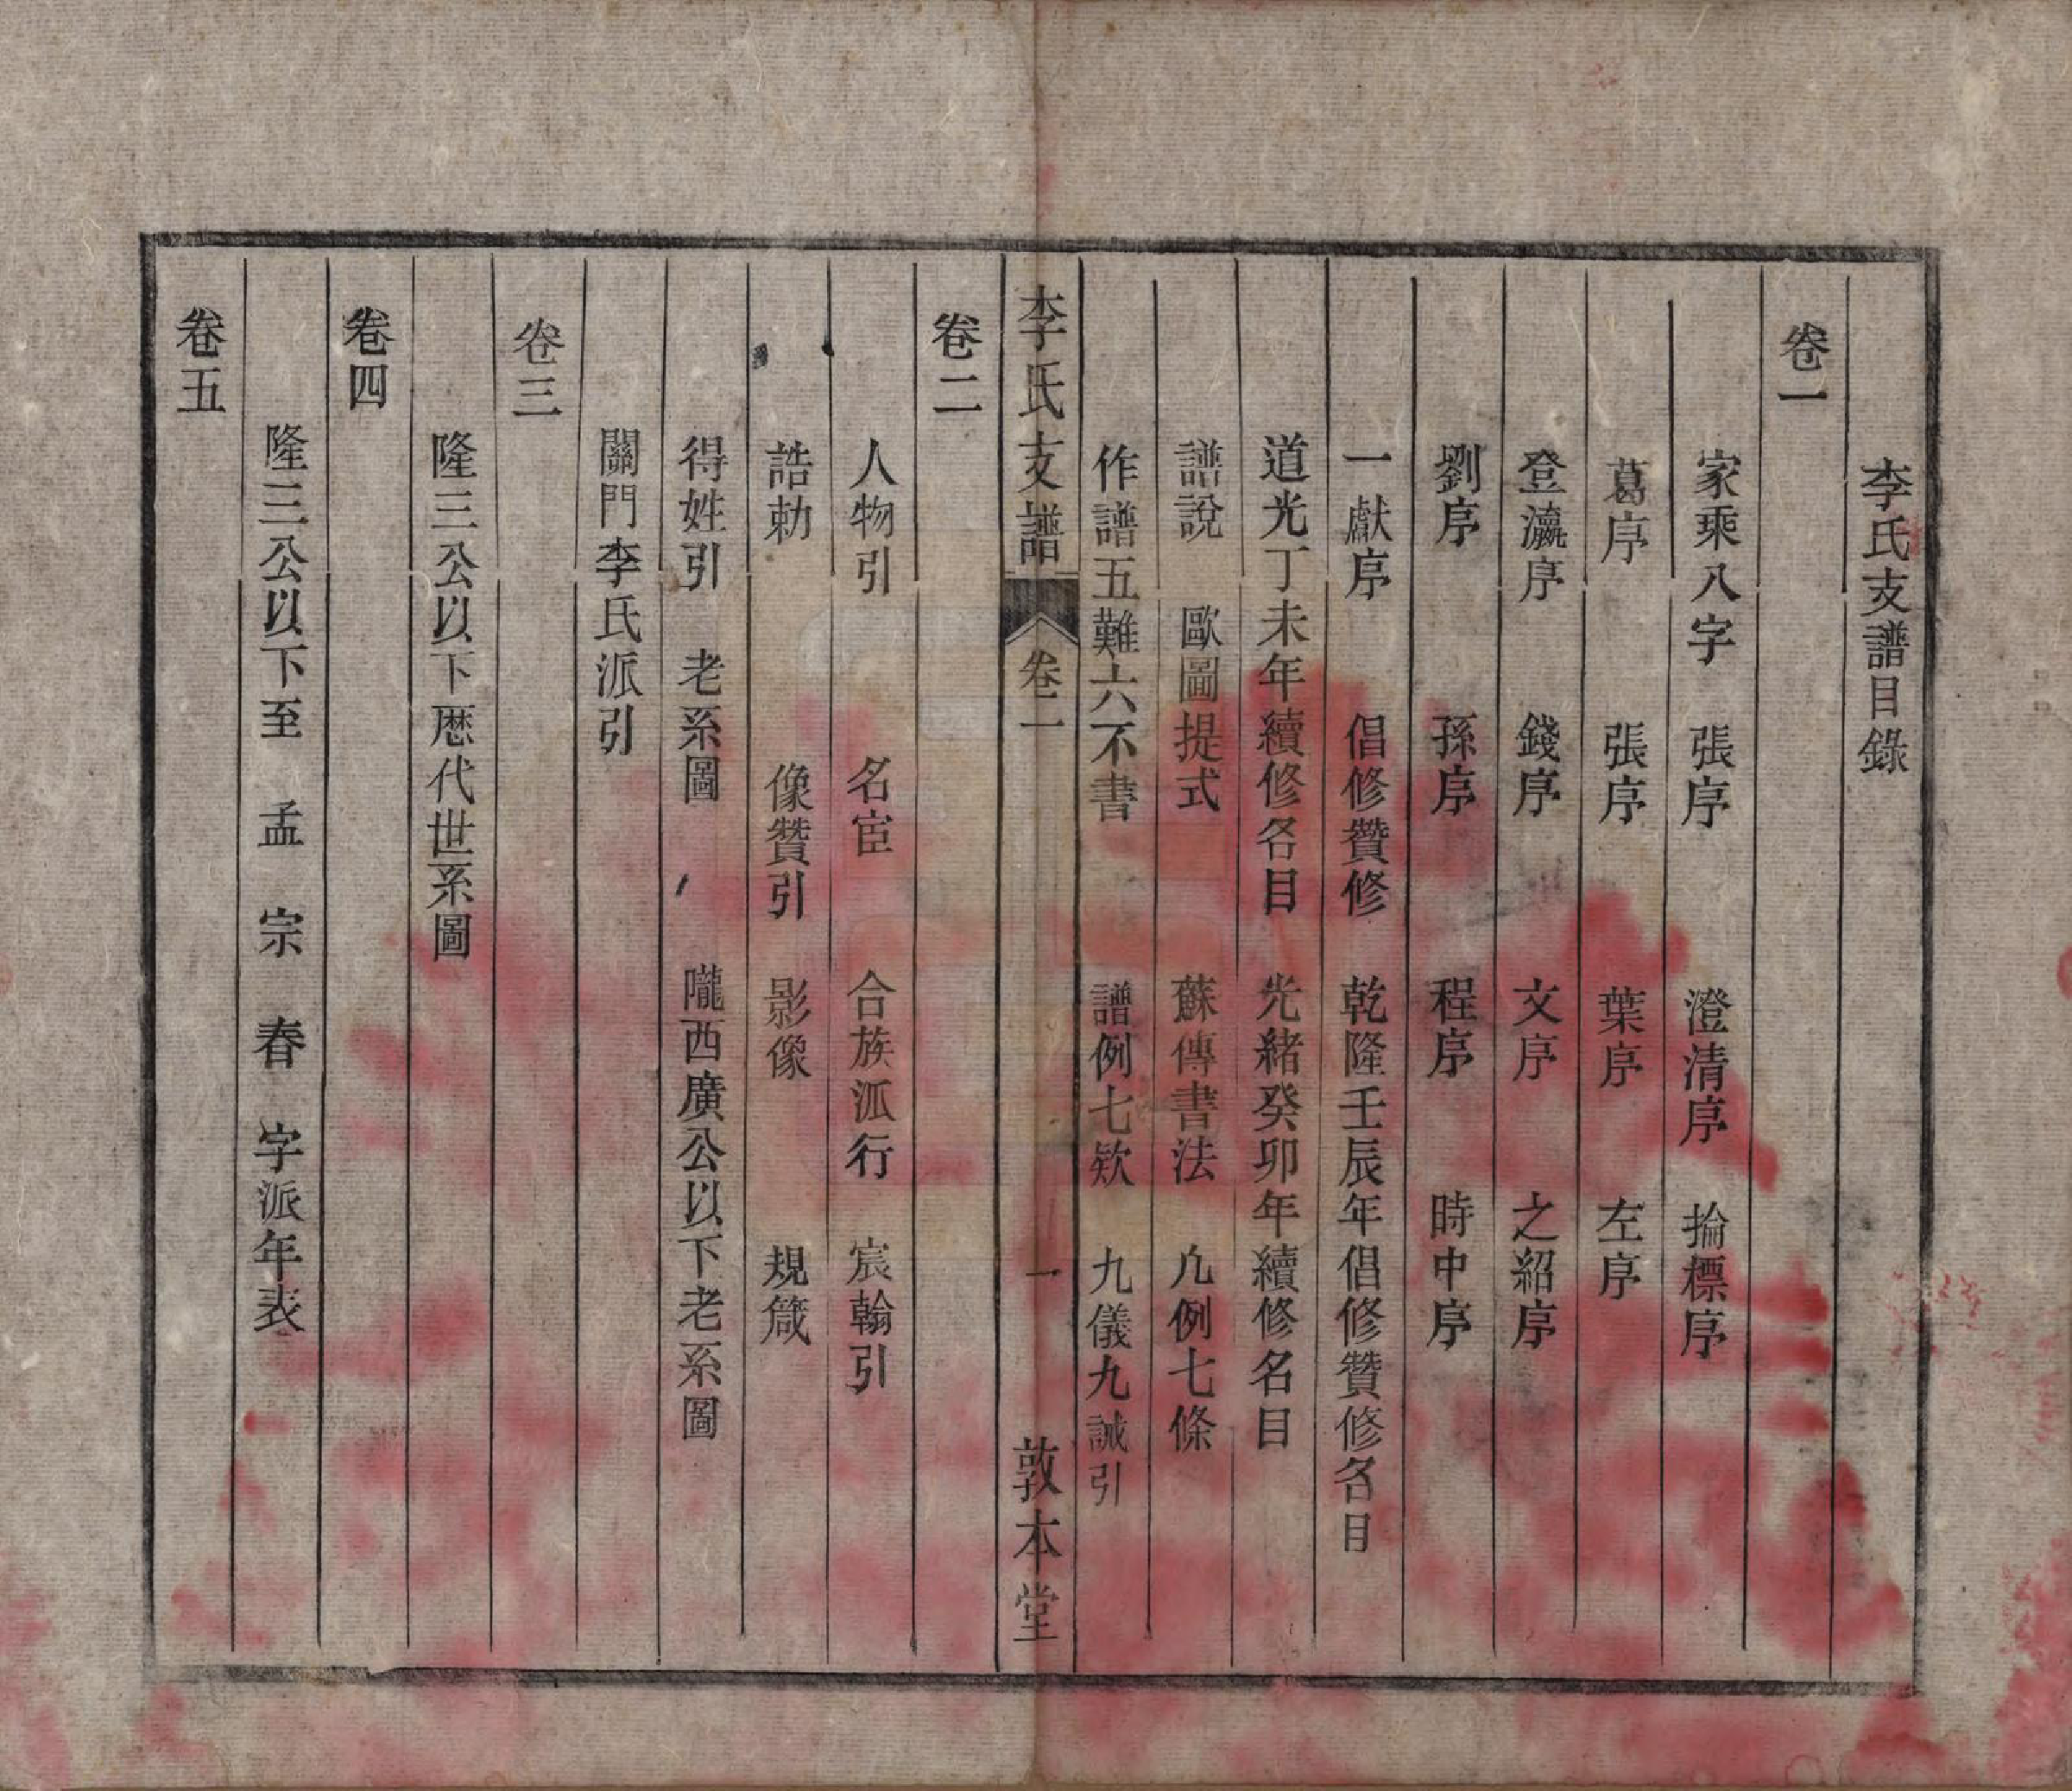 李氏支譜目錄
卷一
家乘八字　張序　澄清序　掄標序
葛序　張序　葉序　左序
登瀛序　錢序　文序　之紹序
劉序　孫序　程序　時中序
一獻序　倡修贊修　乾隆壬辰年倡修贊修名目
道光丁未年續修名目　光緒癸卯年續修名目
譜說　歐圖提式　蘇傳書法　凢例七條
作譜五難六不書　譜例七欵　九儀九誡引
李氏支譜　卷一　一　敦本堂
卷二
人物引　名宦　合族派行　宸翰引
誥勅　像贊引　影像　規箴
得姓引　老系圖　隴西廣公以下老系圖
關門李氏派引
卷三
隆三公以下歷代世系圖
卷四
隆三公以下至　孟　宗　春　字派年表
卷五